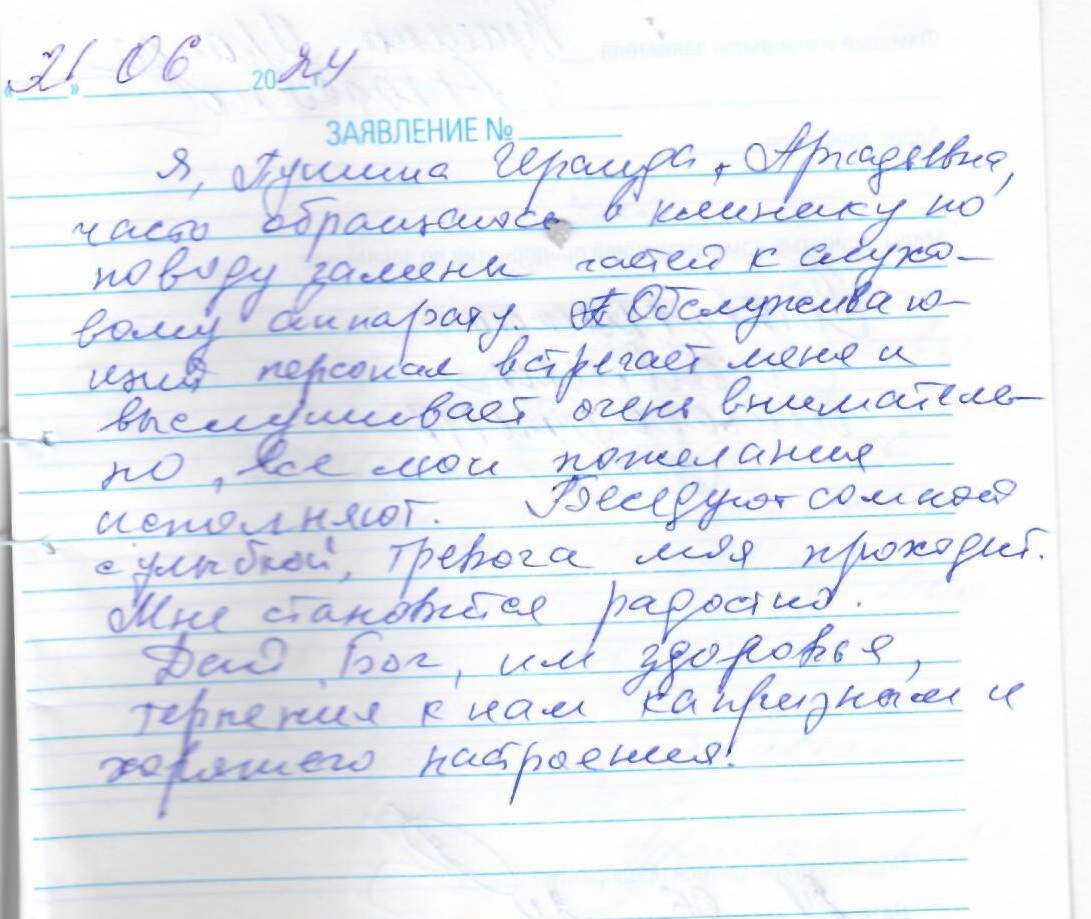 «21» 06 2024 г.
ЗАЯВЛЕНИЕ №
Я, Пушина Аркадьевна,
часто обращаюсь в клинику по
поводу замены частей к слухо-
вому аппарату. Обслуживаю-
щий персонал встречает меня и
выслушивает очень вниматель-
но, все мои пожелания
исполняют. Беседуют со мной
с улыбкой, тревога моя проходит.
Мне становится радостно.
Дай Бог, им здоровья,
терпения к нам капризным и
хорошего настроения!